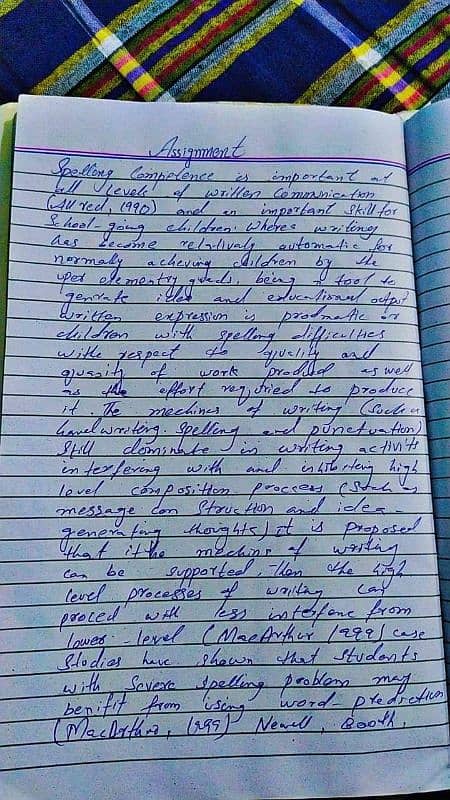 Assignment
Spelling Competence is important at
all Levels of written Communication
(All red, 1990) and an important skill for
School-going children. Wheres writing
has become relatively automatic for
normally acheving children by the
uper elementry grads, being a tool to
genrate idea and educational output
written expression is prodmatic for
children with spelling difficulties
with respect to quality and
quantity of work prodied as well
as the effort requried to produce
it. The mechines of writing (Such as
hand writing. Spelling and punctuation)
Still dominate in writing activits
interfering with and inhibiting high
level composition process (Such as
message con struction and idea-
generating thoughts) it is proposed
that if the mechins of writing
can be supported, then the high
level processes of writing can
proced with less interfane from
lower-level (MacArthur 1999) case
Studies have shown that students
with Severe Spelling problem may
benifit from using word-prediction
(MacArthur, 1999) Newell, Booth,